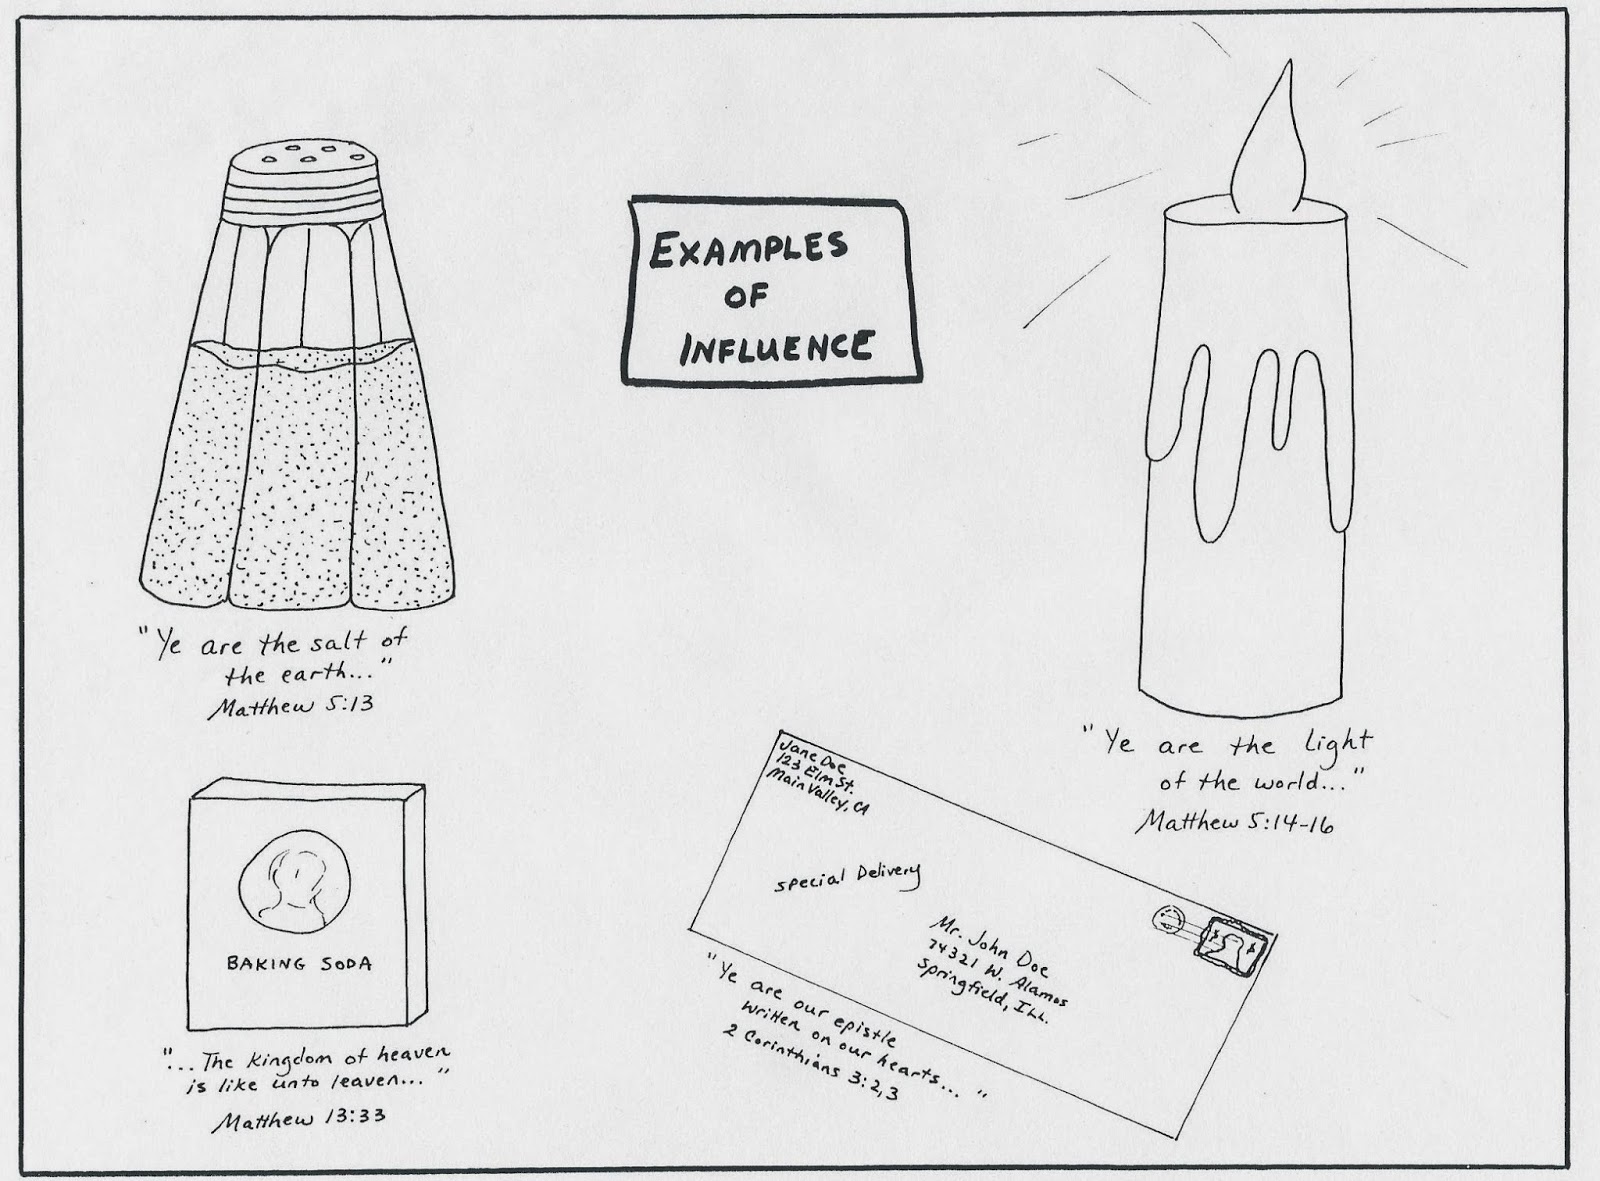 EXAMPLES
OF
INFLUENCE
"Ye are the salt of
the earth..."
Matthew 5:13
"Ye are the light
of the world..."
Matthew 5:14-16
BAKING SODA
"...The kingdom of heaven
is like unto leaven..."
Matthew 13:33
Jane Doe
123 Elm St.
Main Valley, CA
Special Delivery
Mr. John Doe
74321 W. Alamos
Springfield, Ill.
"Ye are our epistle
written on our hearts..."
2 Corinthians 3:2,3